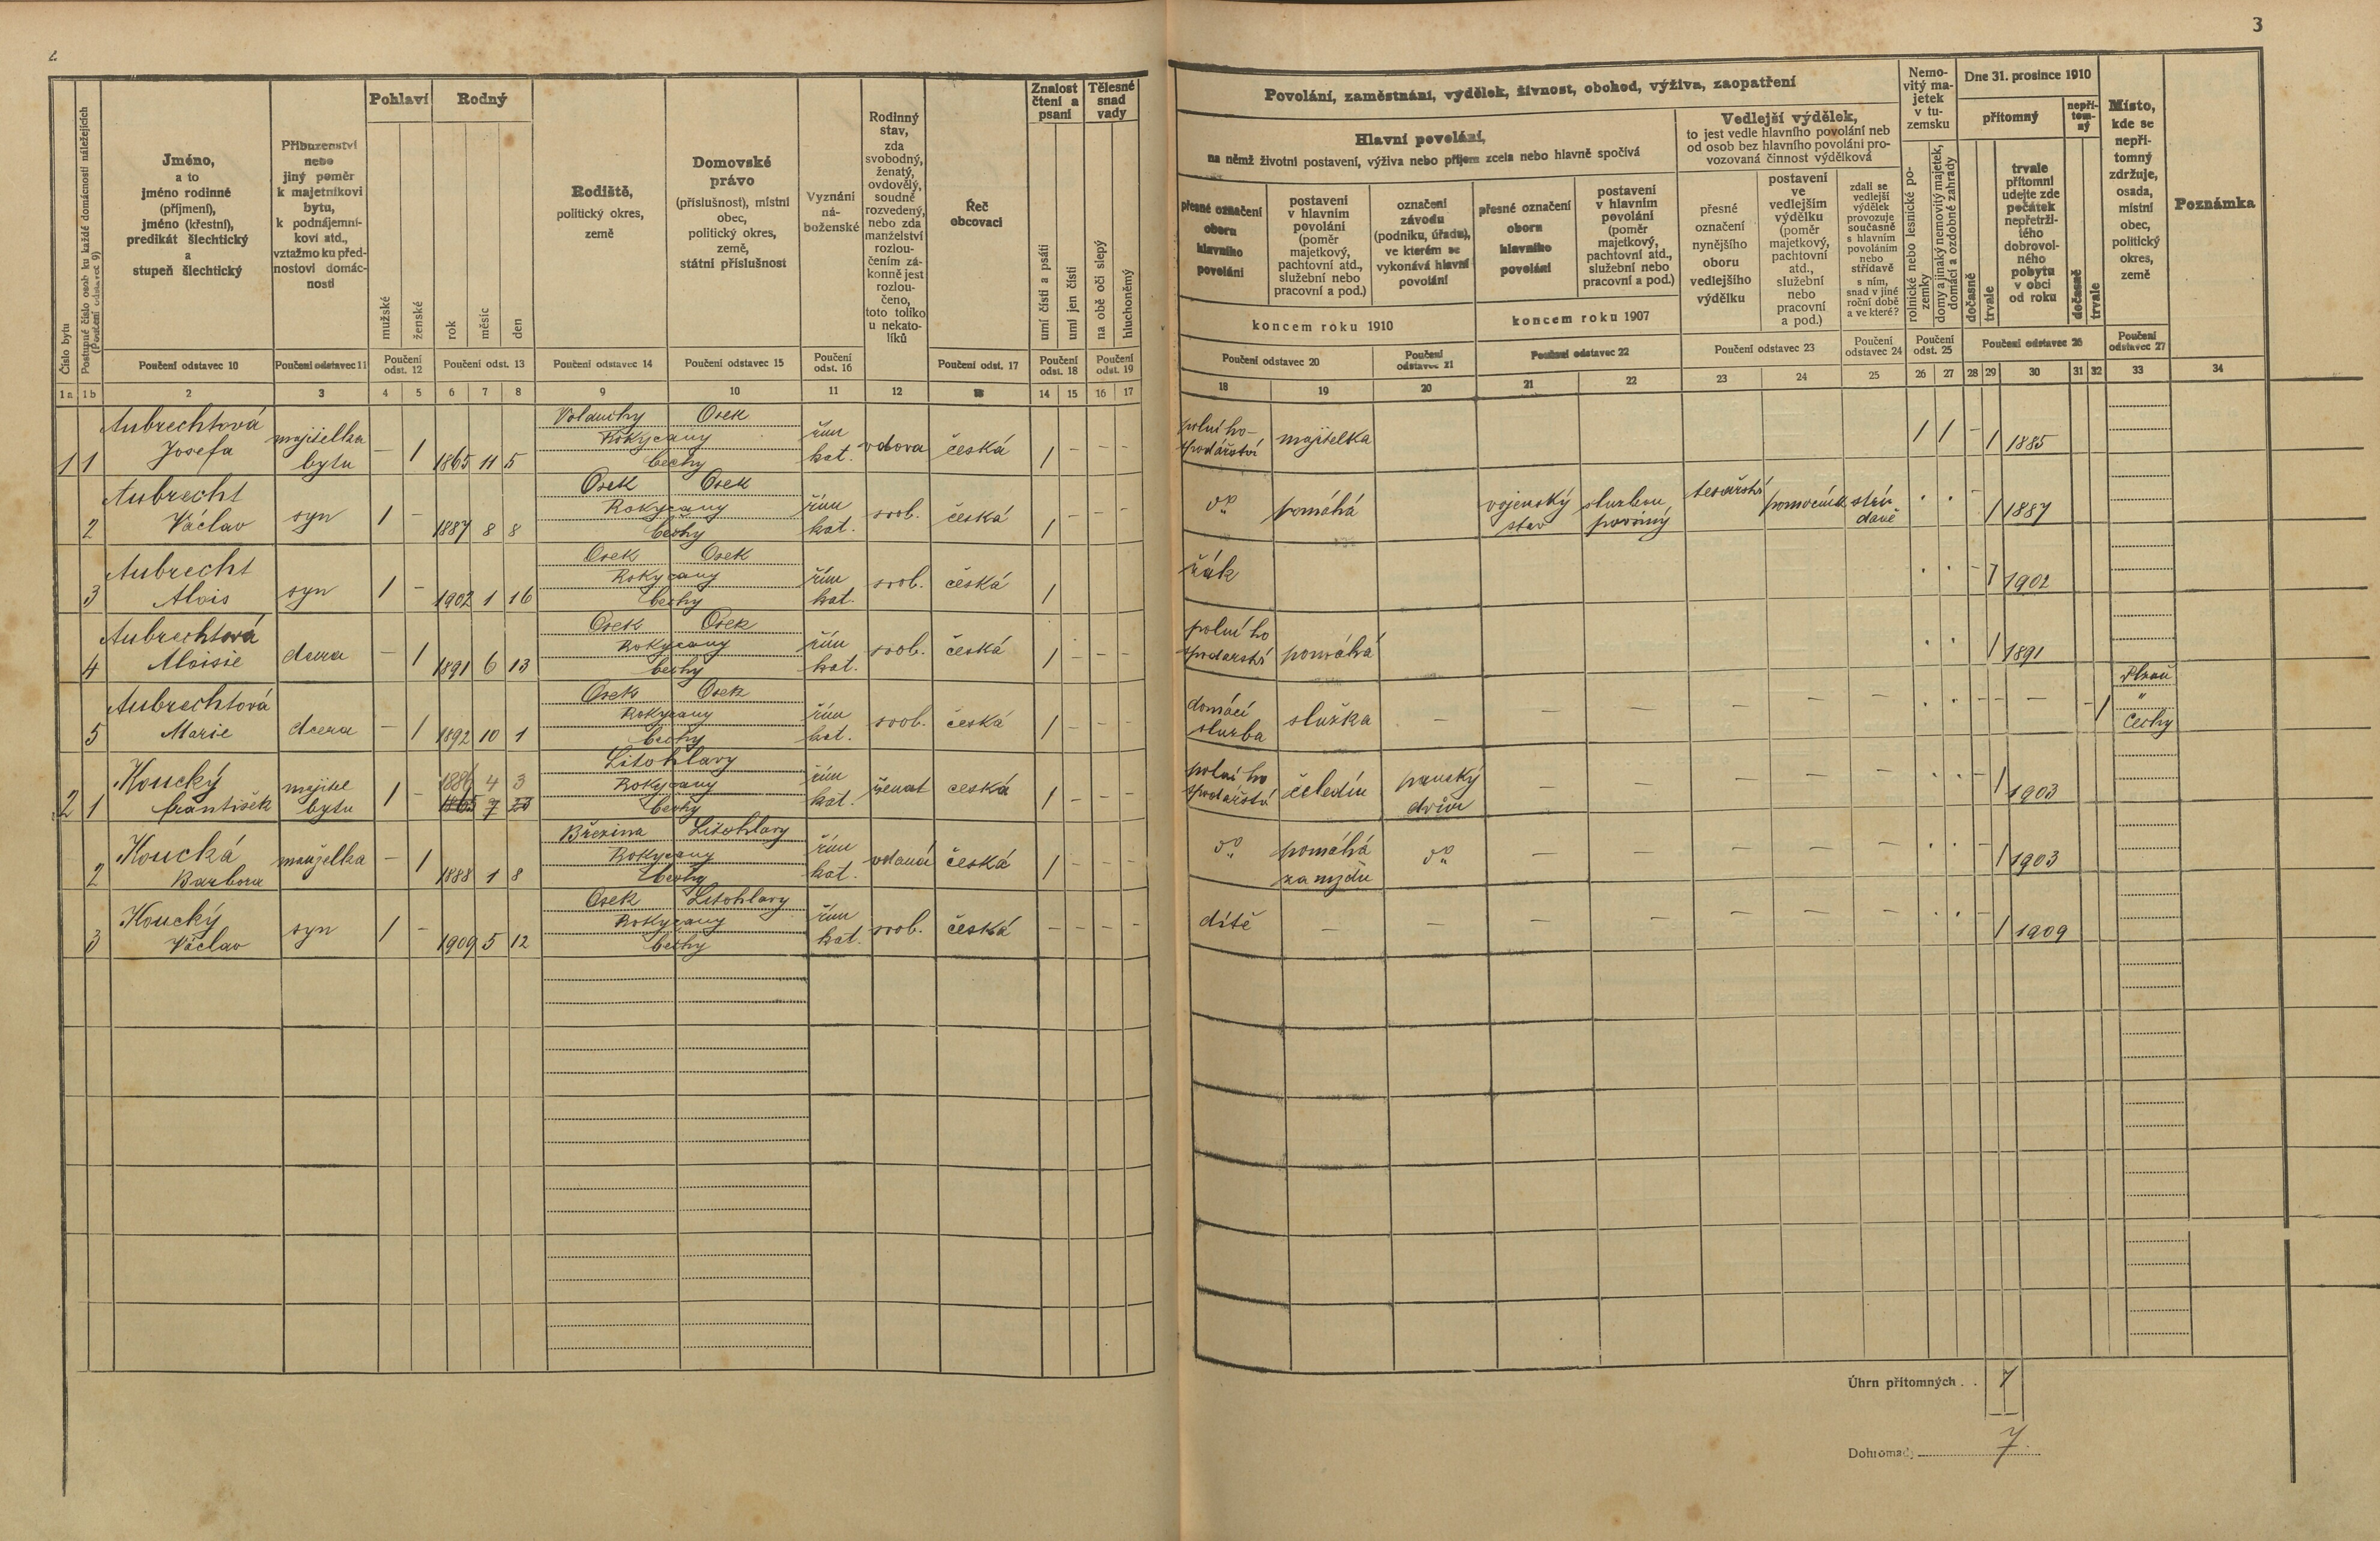 2
3
Číslo bytu
Postupné číslo osob ku každé domácnosti náležejících
(Poučení odstavec 9)
Jméno,
a to
jméno rodinné
(příjmení),
jméno (křestní),
predikát šlechtický
a
stupeň šlechtický
Příbuzenství
nebo
jiný poměr
k majetníkovi
bytu,
k podnájemní-
kovi atd.,
vztažmo ku před-
nostovi domác-
nosti
Pohlaví
mužské
ženské
Rodný
rok
měsíc
den
Rodiště,
politický okres,
země
Domovské
právo
(příslušnost), místní
obec,
politický okres,
země,
státní příslušnost
Vyznání
ná-
boženské
Rodinný
stav,
zda
svobodný,
ženatý,
ovdovělý,
soudně
rozvedený,
nebo zda
manželství
rozlou-
čením zá-
konně jest
rozlou-
čeno,
toto toliko
u nekato-
líků
Řeč
obcovací
Znalost
čtení a
psaní
umí čísti a psáti
umí jen čísti
Tělesné
snad
vady
na obě oči slepý
hluchoněmý
Poučení odstavec 10
Poučení odstavec 11
Poučení
odst. 12
Poučení odst. 13
Poučení odstavec 14
Poučení odstavec 15
Poučení
odst. 16
Poučení odst. 17
Poučení
odst. 18
Poučení
odst. 19
1a 1b 2 3 4 5 6 7 8 9 10 11 12 13 14 15 16 17
Povolání, zaměstnání, výdělek, živnost, obchod, výživa, zaopatření
Hlavní povolání,
na němž životní postavení, výživa nebo příjem zcela nebo hlavně spočívá
přesné označení
oboru
hlavního
povolání
postavení
v hlavním
povolání
(poměr
majetkový,
pachtovní atd.,
služební nebo
pracovní a pod.)
označení
závodu
(podniku, úřadu),
ve kterém se
vykonává hlavní
povolání
koncem roku 1910
přesné označení
oboru
hlavního
povolání
postavení
v hlavním
povolání
(poměr
majetkový,
pachtovní atd.,
služební nebo
pracovní a pod.)
koncem roku 1907
Vedlejší výdělek,
to jest vedle hlavního povolání neb
od osob bez hlavního povolání pro-
vozovaná činnost výdělková
přesné
označení
nynějšího
oboru
vedlejšího
výdělku
postavení
ve
vedlejším
výdělku
(poměr
majetkový,
pachtovní
atd.,
služební
nebo
pracovní
a pod.)
zdali se
vedlejší
výdělek
provozuje
současně
s hlavním
povoláním
nebo
střídavě
s ním,
snad v jiné
roční době
a ve které?
Nemo-
vitý ma-
jetek
v tu-
zemsku
rolnické nebo lesnické po-
zemky
domy a jinaký nemovitý majetek,
domácí a ozdobné zahrady
Dne 31. prosince 1910
přítomný
dočasně
trvale
trvale
přítomní
udejte zde
počátek
nepřetrži-
tého
dobrovol-
ného
pobytu
v obci
od roku
nepří-
tom-
ný
dočasně
trvale
Místo,
kde se
nepří-
tomný
zdržuje,
osada,
místní
obec,
politický
okres,
země
Poznámka
Poučení odstavec 20
Poučení
odstavec 21
Poučení odstavec 22
Poučení odstavec 23
Poučení
odstavec 24
Poučení
odst. 25
Poučení odstavec 26
Poučení
odstavec 27
18 19 20 21 22 23 24 25 26 27 28 29 30 31 32 33 34
Aubrechtová Volduchy Osek
Josefa majitelka Rokycany řím vdova česká
1 1 bytu – 1 1865 11 5 Čechy kat. 1 – – –
polní ho- majitelka 1 1 – 1 1885
spodářství
Aubrecht Osek Osek
2 Václav syn 1 – 1887 8 8 Rokycany řím svob. česká
Čechy kat. 1 – – –
do pomáhá vojenský službou tesařství pomocník stří-
stav povinný davě . . – 1 1887
Aubrecht Osek Osek
3 Alois syn 1 – 1902 1 16 Rokycany řím svob. česká
Čechy kat. 1
žák . . – 1 1902
Aubrechtová Osek Osek
4 Aloisie dcera – 1 1891 6 13 Rokycany řím svob. česká
Čechy kat. 1 – – –
polní ho
spodarství pomáhá . . – 1 1891
Aubrechtová Osek Osek
5 Marie dcera – 1 1892 10 1 Rokycany řím svob. česká
Čechy kat. 1 – – –
domácí služka – – – – – – . . – – – – 1 Plzeň
služba "
Čechy
Koucký majitel 1886 4 3 Litohlavy
2 1 František bytu 1 – 1865 7 23 Rokycany řím ženat česká
Čechy kat. 1 – – –
polní ho čeledín panský – – – – – . . – 1 1903
spodářství dvůr
Koucká Březina Litohlavy
2 Barbora manželka – 1 1888 1 8 Rokycany řím vdaná česká
Čechy kat. 1 – – –
do pomáhá do – – – – – . . – 1 1903
za mzdu
Koucký Osek Litohlavy
3 Václav syn 1 – 1909 5 12 Rokycany řím svob. česká
Čechy kat. – – – –
dítě – – – – – – – . . – 1 1909
Úhrn přítomných . . 7
Dohromady 7.